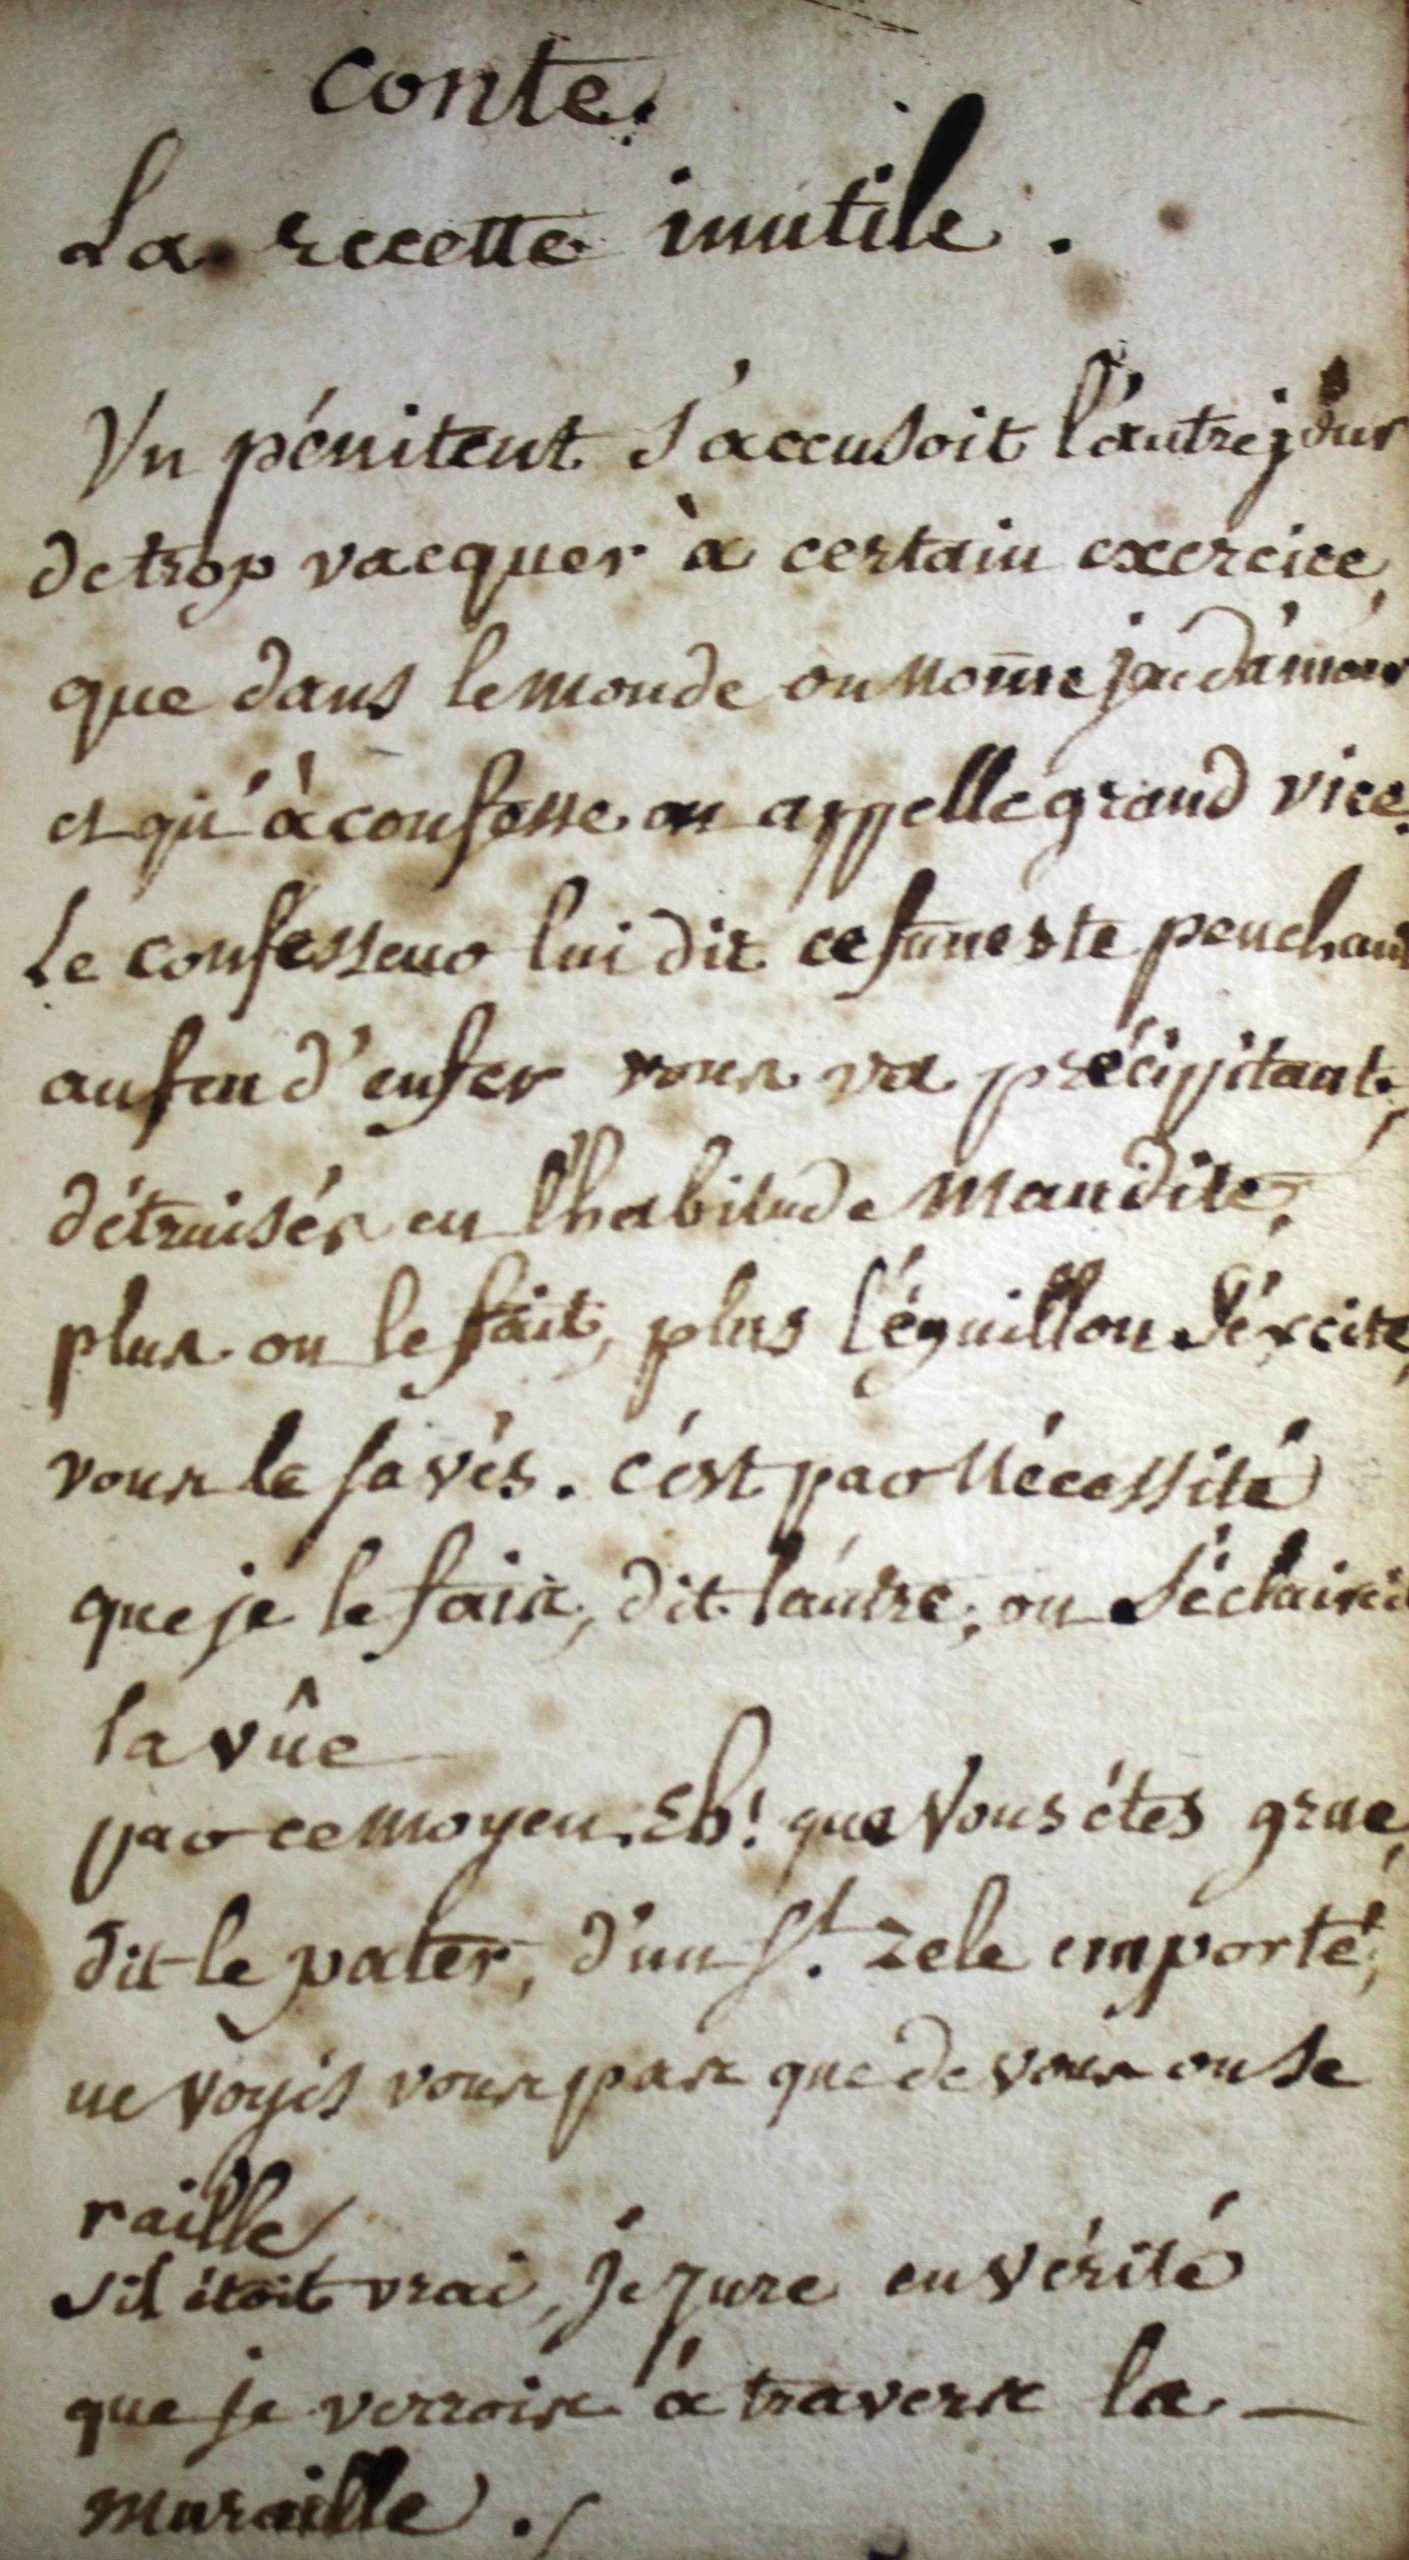 conte.
La recette inutile.
Un pénitent s'accusoit l'autre jour
de trop vacquer à certain exercice,
que dans le monde on nom̄e jeu d'amour
et qu'à confesse on appelle grand vice.
Le confesseur lui dit ce funeste penchant
au feu d'enfer vous va précipitant,
détruisés en l'habitude maudite,
plus on le fait, plus l'éguillon s'éxcite,
vous le savés. c'est par nécessité
que je le fais, dit l'autre, on s'éclaircit
la vûe
par ce moyen. Eh! que vous étes grue,
dit le pater, d'un st. zele emporté,
ne voyés vous pas que de vous on se
raille
s'il étoit vrai, je jure en vérité
que je verrois à travers la —
muraille.